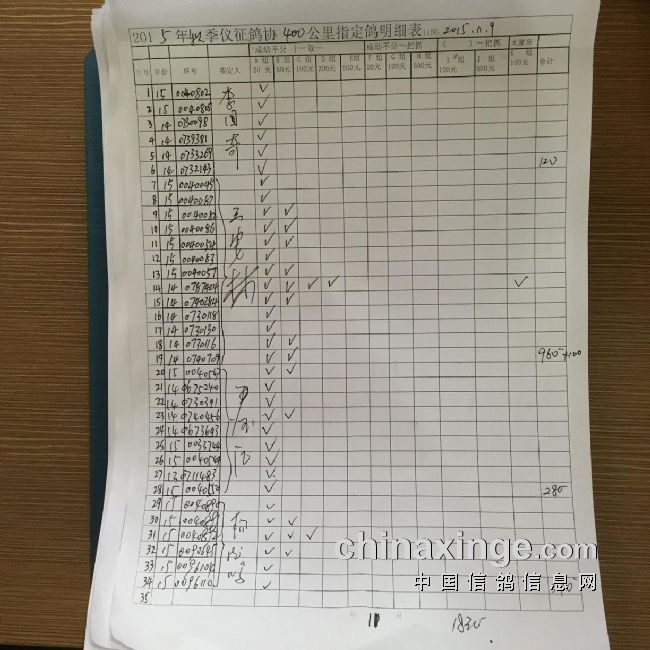 2015年秋季仪征鸽协400公里指定鸽明细表 日期:2015.11.9
成功不分 十一取一 成功不分一把抓 ( )一把抓 大家乐
序号 年份 环号 指定人 A组20元 B组50元 C组100元 D组200元 E组500元 F组20元 G组100元 H组500元 I组100元 J组500元 组100元 合计
1 15 0040802 李 ✓
2 15 0040808 ✓
3 14 0730098 国 ✓
4 14 0739381 奇 ✓
5 14 0733269 ✓
6 14 0732143 ✓ 120
7 15 0040045 ✓
8 15 0040087 ✓
9 15 0040082 王 ✓ ✓
10 15 0040086 ✓ ✓
11 15 0040054 ✓ ✓
12 15 0040083 ✓
13 15 0040057 ✓ ✓
14 14 0787404 林 ✓ ✓ ✓ ✓ ✓
15 14 0740284 ✓ ✓
16 14 0730118 ✓
17 14 0730130 ✓
18 14 0730116 ✓ ✓
19 14 0740709 ✓ ✓ 960+100
20 15 0040543 ✓ ✓
21 14 0675240 ✓
22 14 0730391 ✓
23 14 0740456 ✓ ✓
24 14 0673693 ✓
25 15 0033744 ✓
26 15 0040549 ✓
27 13 0711483 ✓
28 15 0040550 ✓ 280
29 15 0040890 ✓
30 15 ✓ ✓
31 15 ✓ ✓ ✓
32 15 0090645 ✓ ✓
33 15 ✓
34 15 0096110 ✓
35
第 11 页 1835
chinaxinge.com
中国信鸽信息网